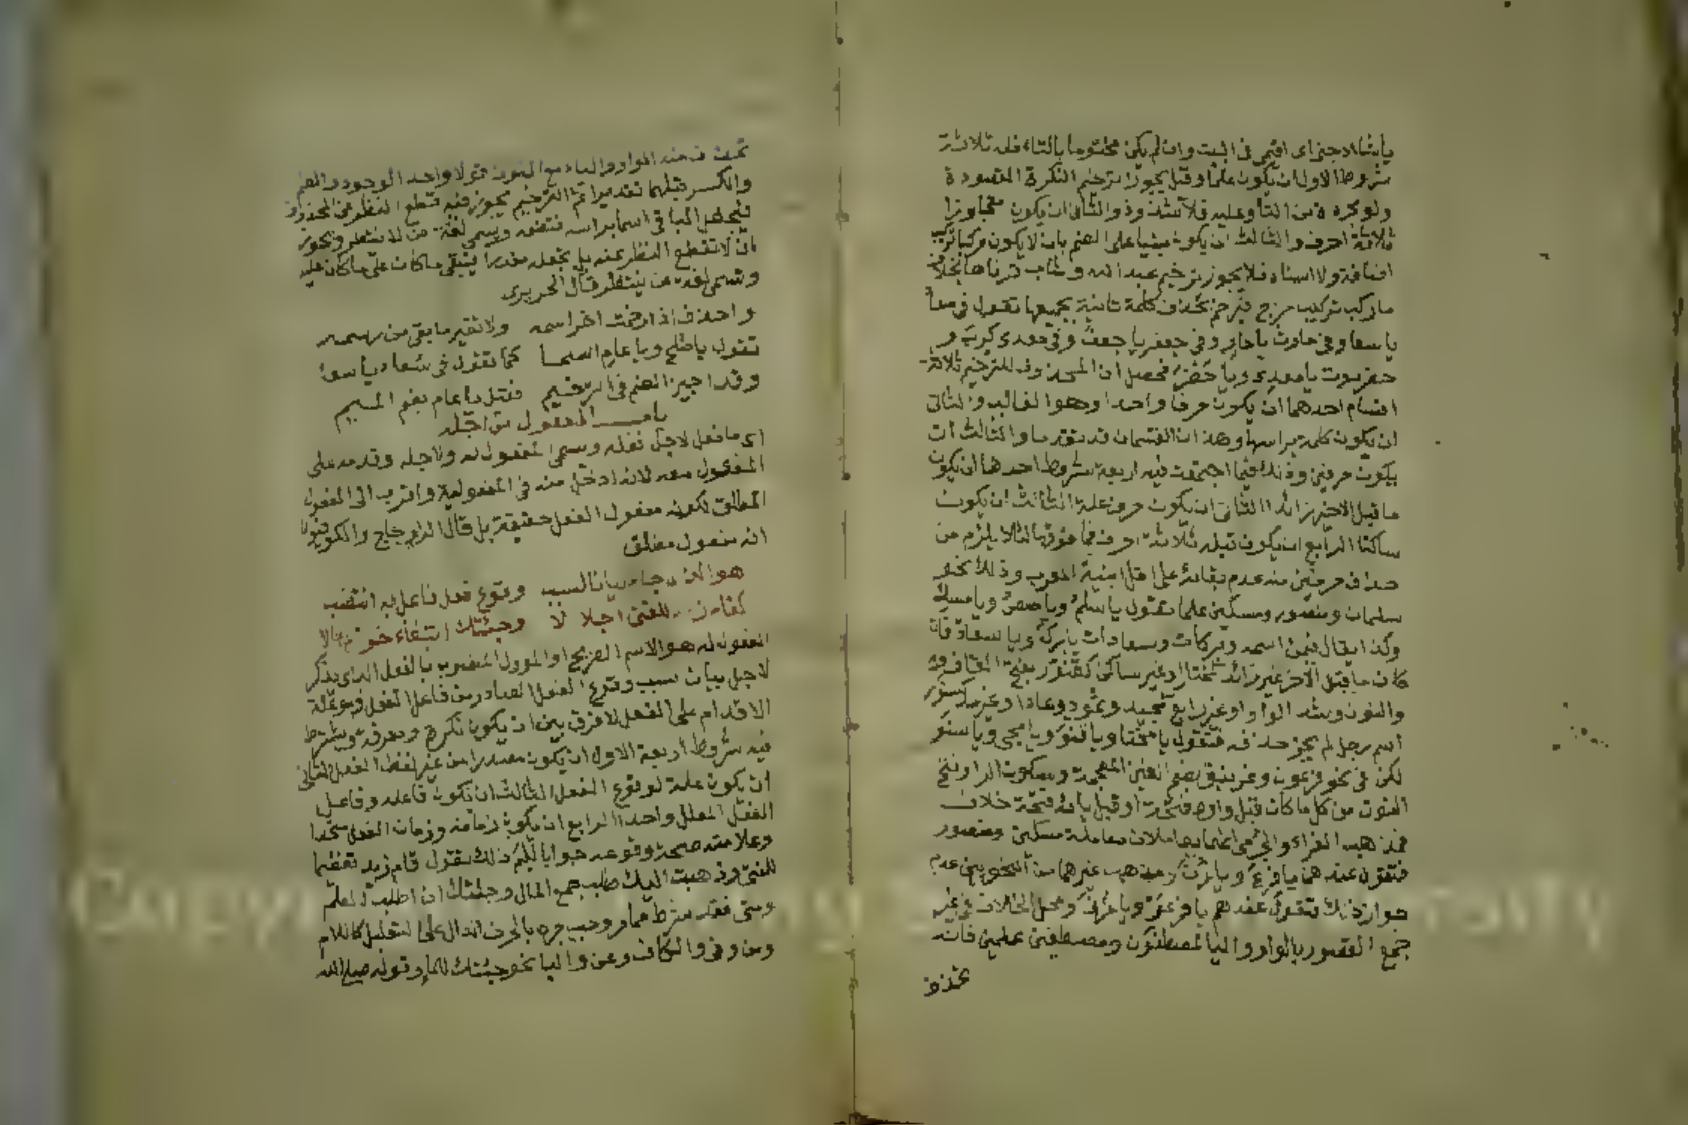 يا شا الاجتزاى اقيمى فى البيت وان لم يكن مختوما بالتاء فله ثلاثة
شروط الاول ان يكون علما وقيل يجوز ترخيم النكرة المقصودة
ولو مجردة من التا وعليه فلا شذوذ والثانى ان يكون متجاوزا
ثلاثة احرف والثالث ان يكون مبنيا على الضم بان لا يكون مركبا تركيب
اضافة ولا اسناد فلا يجوز ترخيم عبد الله وشاب قرناها بخلاف
ما ركب تركيب مزج فيرخم بحذف كلمة ثانية بجميعها تقول فى سعاد
يا سعا وفى حارث يا حار وفى جعفر يا جعف وفى معدى كرب و
حضرموت يا معدى ويا حضر فحصل ان المحذوف للترخيم ثلاثة
اقسام احدهما ان يكون حرفا واحدا وهو الغالب والثانى
ان يكون كلمة براسها وهذان القسمان قد تقدما والثالث ان
يكون حرفين وذلك فيما اجتمعت فيه اربعة شروط احدها ان يكون
ما قبل الاخير زائدا الثانى ان يكون حرف علة الثالث ان يكون
ساكنا الرابع ان يكون قبله ثلاثة احرف فما فوقها لئلا يلزم من
حذف حرفين منه عدم بقائه على اقل ابنية المعرب وذلك نحو
سلمان ومنصور ومسكين علما تقول يا سلم ويا منص ويا مسك
وكذا يقال فيمن اسمه وبركات وسعادات يا برك ويا سعاد فان
كان ما قبل الاخر غير زائد كمختار او غير ساكن كقنور بفتح القاف و
والنون وشد الواو او غير رابع كمجيد وثمود وعاد او غير
اسم رجل لم يجز حذفه فتقول يا مختا ويا قنو ويا مجى ويا سنو
لكن فى نحو فرعون وغرنيق بضم الغين المعجمة وسكون الرا وفتح
النون من كل ما كان قبل واوه فتحة او قبل يائه فتحة خلاف
فمذهب الفراء والجرمى انهما يعاملان معاملة مسكين ومنصور
فتقول عندهما يا فرع ويا غرن ومذهب غيرهما من النحويين عدم
جواز ذلك فتقول عندهم يا فرعو ويا غرنى ومحل الخلاف فى غير
جمع المقصور بالواو واليا كمصطفون ومصطفين علمين فانه
تحذف
تحذف منه الواو والياء مع النون قولا واحدا لوجود الضم
والكسر قبلهما تقديرا ثم الترخيم يجوز فيه قطع النظر عن المحذوف
فتجعل الباقى اسما براسه فتضمه ويسمى لغة من لا ينتظر ويجوز
ان لا تقطع النظر عنه بل تجعله مقدرا فيبقى ما كان على ما كان عليه
وتسمى لغة من ينتظر قال الحريرى
واحذف اذا رخمت اخر اسمه ولا تغير ما بقى من رسمه
تقول يا طلح ويا عام اسمعا كما تقول فى سعاد يا سعا
وقد اجيز الضم فى الترخيم فقيل يا عام بضم الميم
باب المفعول من اجله
اى ما فعل لاجل فعله وسمى المفعول له ولاجله وقدمه على
المفعول معه لانه ادخل منه فى المفعولية واقرب الى المفعول
المطلق لكونه مفعول الفعل حقيقة بل قال الزجاج والكوفيون
انه مفعول مطلق
هو الذى جاء بيانا لسبب وقوع فعل فاعل به انتصب
كقام زيد للفتى اجلالا وجئتك ابتغاء خير
المفعول له هو الاسم الصريح او المؤول المنصوب بالفعل الذى يذكر
لاجل بيان سبب وقوع الفعل الصادر من فاعل الفعل فهو علة
الاقدام على الفعل لا فرق بين ان يكون نكرة ومعرفة ويشترط
فيه شروط اربعة الاول ان يكون مصدرا من غير لفظ الفعل الثانى
ان يكون علة لوقوع الفعل الثالث ان يكون فاعله وفاعل
الفعل المعلل واحدا الرابع ان يكون زمانه وزمان الفعل متحدا
وعلامته صحة وقوعه جوابا للم ذلك تقول قام زيد تعظيما
للفتى وذهبت اليك طلب جمع المال وجئتك ان اطلب العلم
ومتى فقد شرط مما مر وجب جره بالحرف الدال على التعليل كاللام
ومن وفى والكاف وعن والبا نحو جئتك للماء وقوله صلى الله